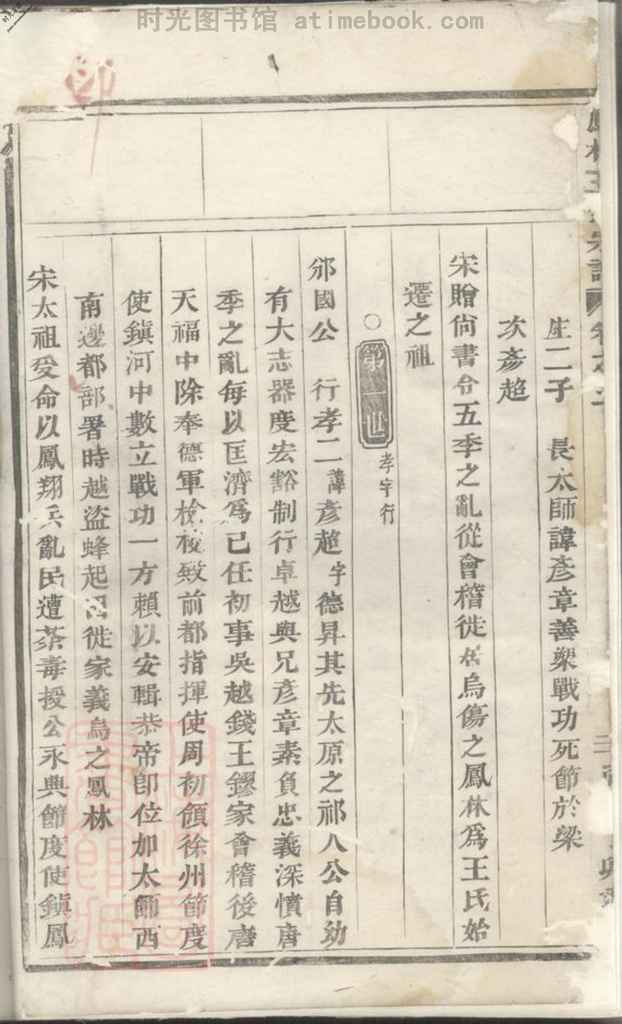 时光图书馆 atimebook.com
生二子 長太師諱彥章善槊戰功死節於梁
次彥超
宋贈尙書令五季之亂從會稽徙居烏傷之鳳林爲王氏始
遷之祖
○第一世 孝字行
邠國公 行孝二諱彥超字德昇其先太原之祁人公自幼
有大志器度宏豁制行卓越與兄彥章素負忠義深憤唐
季之亂每以匡濟爲己任初事吳越錢王鏐家會稽後唐
天福中除奉德軍檢校致前都指揮使周初領徐州節度
使鎮河中數立戰功一方賴以安輯恭帝卽位加太師西
南邊都部署時越盜蜂起因徙家義烏之鳳林
宋太祖受命以鳳翔兵亂民遭荼毒授公永興節度使鎮鳳